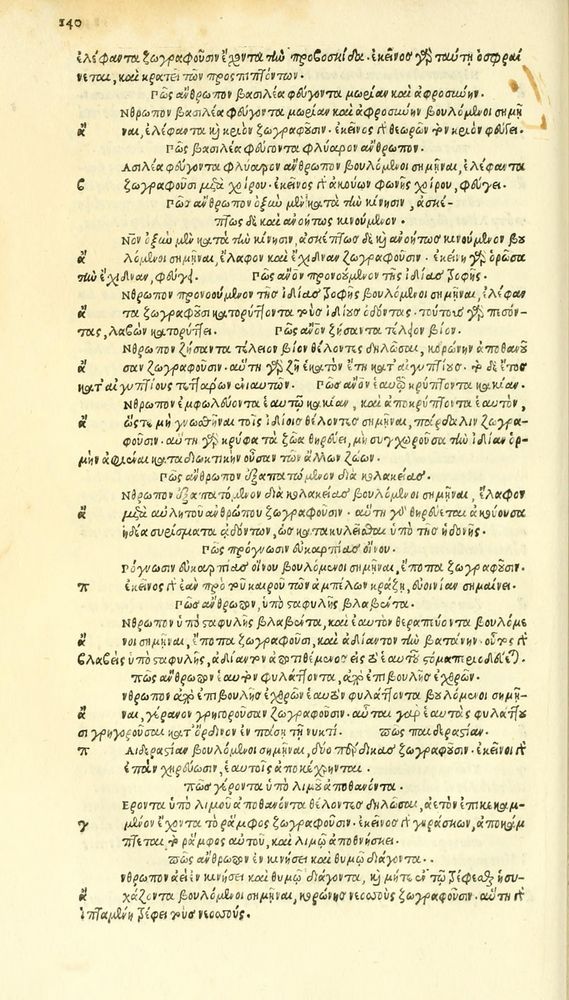 140
ἐλέφαντα ζωγραφοῦσιν ἔχοντα τὴν προβοσκίδα. ἐκεῖνος γὰρ ταύτῃ ὀσφραί
νεται, καὶ κρατεῖ τῶν προςπιπτόντων.
Πῶς ἄνθρωπον βασιλέα φεύγοντα μωρίαν καὶ ἀφροσύνην.
Νθρωπον βασιλέα φεύγοντα μωρίαν καὶ ἀφροσύνην βουλόμενοι σημῆ
ἄ ναι, ἐλέφαντα καὶ κριὸν ζωγραφοῦσιν. ἐκεῖνος δὲ θεωρῶν τὸν κριὸν φεύγει.
Πῶς βασιλέα φεύγοντα φλύαρον ἄνθρωπον.
Ασιλέα φεύγοντα φλύαρον ἄνθρωπον βουλόμενοι σημῆναι, ἐλέφαντα
ϐ ζωγραφοῦσι μετὰ χοίρου. ἐκεῖνος δὲ ἀκούων φωνῆς χοίρου, φεύγει.
Πῶς ἄνθρωπον ὀξὺν μὲν κατὰ τὴν κίνησιν, ἀσκέ-
πτως δὲ καὶ ἀνοήτως κινούμενον.
Νον ὀξὺν μὲν κατὰ τὴν κίνησιν, ἀσκέπτως δὲ καὶ ἀνοήτως κινούμενον βου
ἄ λόμενοι σημῆναι, ἔλαφον καὶ ἔχιδναν ζωγραφοῦσιν. ἐκείνη γὰρ ὁρῶσα
τὴν ἔχιδναν, φεύγει. Πῶς ἄνον προνοούμενον τῆς ἰδίας ταφῆς.
Νθρωπον προνοούμενον τῆς ἰδίας ταφῆς βουλόμενοι σημῆναι, ἐλέφαν
ἄ τα ζωγραφοῦσι κατορύττοντα τοὺς ἰδίους ὀδόντας. τούτους γὰρ πεσόν-
τας, λαβὼν κατορύττει. Πῶς ἄνον ζήσαντα τέλειον βίον.
Νθρωπον ζήσαντα τέλειον βίον θέλοντες δηλῶσαι, κορώνην ἀποθανοῦ
ἄ σαν ζωγραφοῦσιν. αὕτη γὰρ ζῇ ἑκατὸν ἔτη κατ' αἰγυπτίους. τὸ δὲ ἔτος
κατ' αἰγυπτίους τεττάρων ἐνιαυτῶν. Πῶς ἄνον ἑαυτῷ κρύπτοντα κακίαν.
Νθρωπον ἐμφωλεύοντα ἑαυτῷ κακίαν, καὶ ἀποκρύπτοντα ἑαυτὸν,
ἄ ὥςτε μὴ γνωσθῆναι τοῖς ἰδίοις θέλοντες σημῆναι, πάρδαλιν ζωγρα-
φοῦσιν. αὕτη γὰρ κρύφα τὰ ζῶα θηρεύει, μὴ συγχωροῦσα τὴν ἰδίαν ὁρ-
μὴν ἀφιέναι καταδιωκτικὴν οὖσαν τῶν ἄλλων ζώων.
Πῶς ἄνθρωπον ἐξαπατώμενον διὰ κολακείας.
Νθρωπον ἐξαπατώμενον διὰ κολακείας βουλόμενοι σημῆναι, ἔλαφον
ἄ μετὰ αὐλητοῦ ἀνθρώπου ζωγραφοῦσιν. αὕτη γὰρ θηρεύεται ἀκούουσα
ἡδέα συρίσματα ᾀδόντων, ὡς κατακυλεῖσθαι ὑπὸ τῆς ἡδονῆς.
Πῶς πρόγνωσιν εὐκαρπίας οἴνου.
Ρόγνωσιν εὐκαρπίας οἴνου βουλόμενοι σημῆναι, ἔποπα ζωγραφοῦσιν.
π ἐκεῖνος δὲ ἐὰν πρὸ τοῦ καιροῦ τῶν ἀμπέλων κράξῃ, εὐοινίαν σημαίνει.
Πῶς ἄνθρωπον, ὑπὸ σταφυλῆς βλαβέντα.
Νθρωπον ὑπὸ σταφυλῆς βλαβέντα, καὶ ἑαυτὸν θεραπεύοντα βουλόμε
ἄ νοι σημῆναι, ἔποπα ζωγραφοῦσι, καὶ ἀδίαντον τὴν βοτάνην. οὗτος δὲ
βλαβεὶς ὑπὸ σταφυλῆς, ἀδίαντον ἀποτιθέμενος εἰς τὸ ἑαυτοῦ στόμα περιοδεύει.
πῶς ἄνθρωπον ἑαυτὸν φυλάττοντα, ἀπὸ ἐπιβουλῆς ἐχθρῶν.
νθρωπον ἀπὸ ἐπιβουλῆς ἐχθρῶν ἑαυτὸν φυλάττοντα βουλόμενοι σημῆ-
ἄ ναι, γέρανον γρηγοροῦσαν ζωγραφοῦσιν. αὗται γὰρ ἑαυτὰς φυλάττου
σι γρηγοροῦσαι κατ' ὄρδινον ἐν πάσῃ τῇ νυκτί. πῶς παιδεραστίαν.
π Αιδεραστίαν βουλόμενοι σημῆναι, δύο πέρδικας ζωγραφοῦσιν. ἐκεῖνοι δὲ
ἐπὰν χηρεύωσιν, ἑαυτοῖς ἀποκέχρηνται.
πῶς γέροντα ὑπὸ λιμοῦ ἀποθανόντα.
Εροντα ὑπὸ λιμοῦ ἀποθανόντα θέλοντες δηλῶσαι, ἀετὸν ἐπικεκαμ-
γ μένον ἔχοντα τὸ ῥάμφος ζωγραφοῦσιν. ἐκεῖνος δὲ γηράσκων, ἀποκάμ
πτεται τὸ ῥάμφος αὐτοῦ, καὶ λιμῷ ἀποθνήσκει.
πῶς ἄνθρωπον ἐν κινήσει καὶ θυμῷ διάγοντα.
νθρωπον ἀεὶ ἐν κινήσει καὶ θυμῷ διάγοντα, καὶ μήτε ἐν τῷ τρέφεσθαι ἡσυ-
ἄ χάζοντα βουλόμενοι σημῆναι, κορώνης νεοσσοὺς ζωγραφοῦσιν. αὕτη δὲ
ἱπταμένη τρέφει τοὺς νεοσσούς.